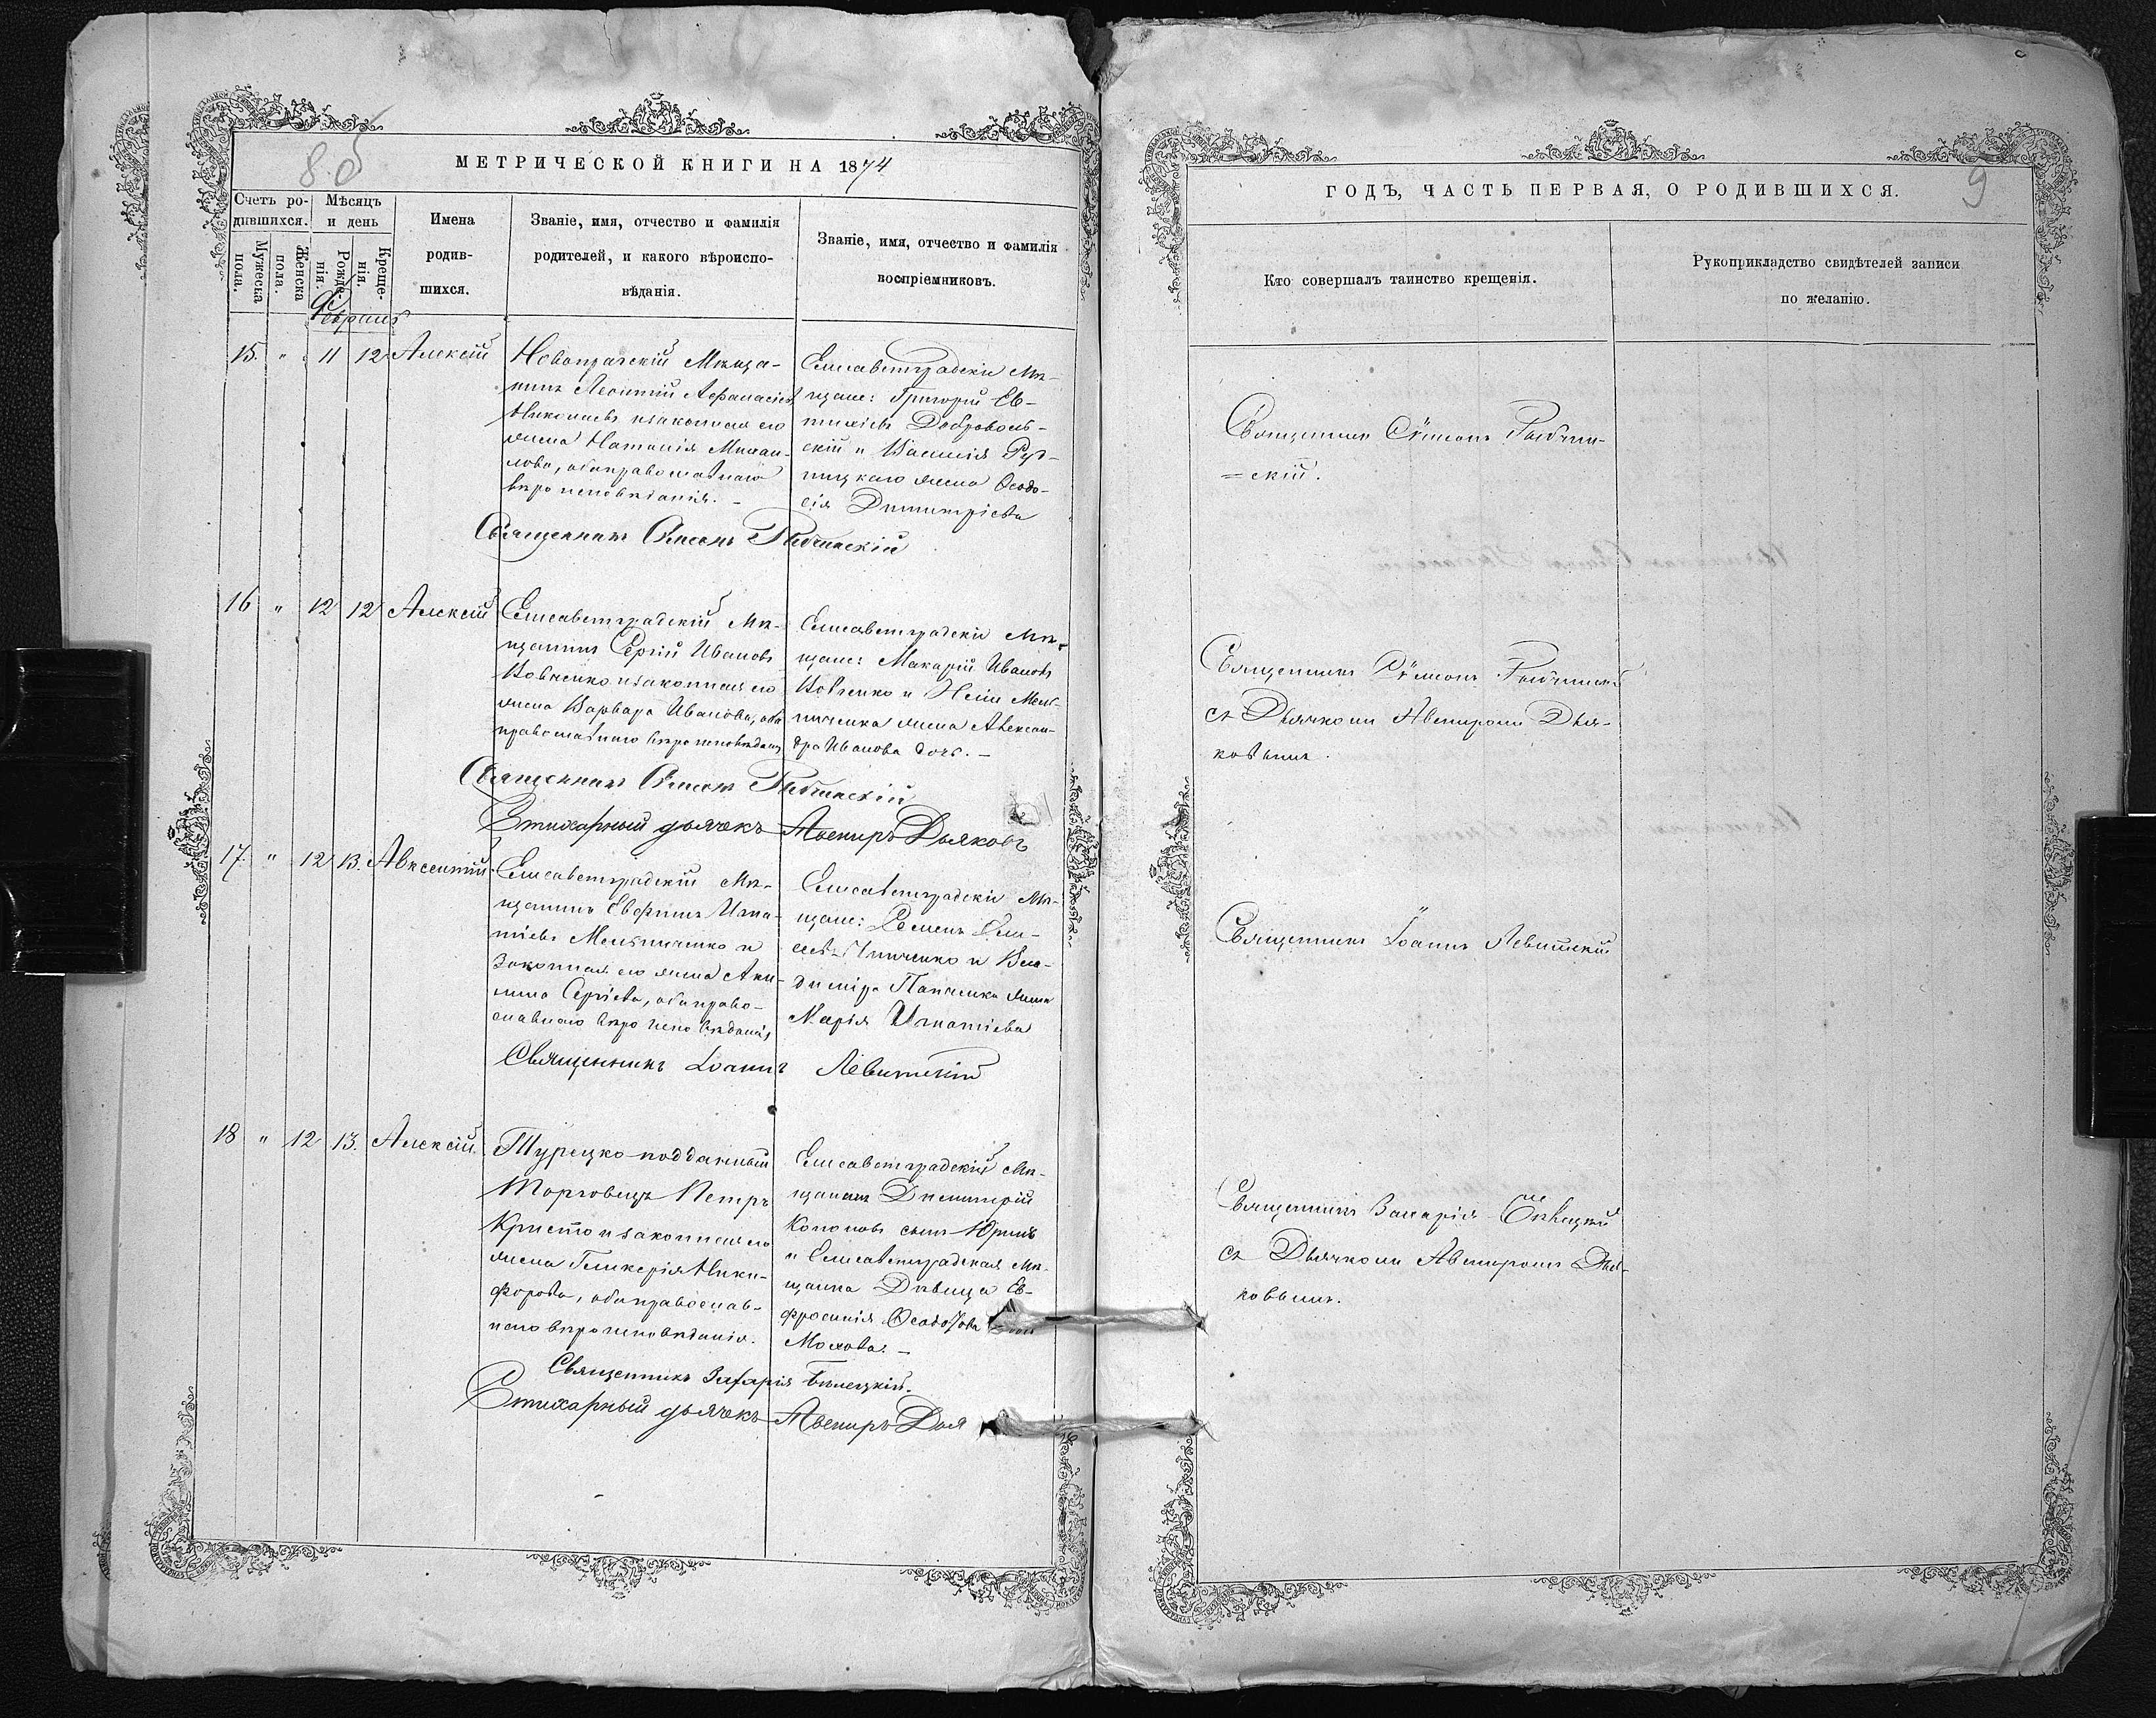 8 об
МЕТРИЧЕСКОЙ КНИГИ НА 1874
Счетъ ро-
дившихся.
Мѣсяцъ
и день
Мужеска
пола.
Женска
пола.
Рожде-
нія.
Креще-
нія.
Имена
родив-
шихся.
Званіе, имя, отчество и фамилія
родителей, и какого вѣроиспо-
вѣданія.
Званіе, имя, отчество и фамилія
воспріемниковъ.
Февраль
15. " 11 12 Алексій
Новопражскій Мѣща-
нинъ Леонтій Афанасіевъ
Николаевъ и законная его
жена Наталія Михаи-
лова, оба православнаго
вѣроисповѣданія. –
Елисаветградскіе Мѣ-
щане: Григорій Ев-
тихіевъ Доброволь-
скій и Василія
жена Ѳеодо-
сія Димитріева
Священникъ Симеонъ
16 " 12 12 Алексій
Елисаветградскій Мѣ-
щанинъ Сергій Ивановъ
Вовченко и законная его
жена Варвара Иванова, оба
православнаго вѣроисповѣданія
Елисаветградскіе Мѣ-
щане: Макарій Ивановъ
Вовченко и Иліи Мель-
ниченка жена Алексан-
дра Иванова дочь. –
Священникъ Симеонъ
Стихарный дьячекъ Авениръ Дьяковъ
17. " 12 13. Авксентій
Елисаветградскій Мѣ-
щанинъ Евфимъ Игна-
тіевъ Мельниченко и
Законная его жена Аки-
лина Сергіева, оба право-
славнаго вѣроисповѣданія
Елисаветградскіе Мѣ-
щане: Семенъ
и Вла-
диміра жена
Марія Игнатіева
Священникъ Іоаннъ Левитскій
18 " 12 13. Алексій
Турецко-подданный
Торговецъ Петръ
Кристо и законная его
жена Гликерія Ники-
форова, оба православ-
наго вѣроисповѣданія.
Елисаветградскій Мѣ-
щанинъ Димитрій
Кононовъ сынъ Юринъ
и Елисаветградская Мѣ-
щанка Дѣвица Ев-
фросинія Ѳеодотова
Мохова. –
Священникъ Захарія Бѣлецкій.
Стихарный дьячекъ Авениръ Дья
9
ГОДЪ, ЧАСТЬ ПЕРВАЯ, О РОДИВШИХСЯ.
Кто совершалъ таинство крещенія.
Рукоприкладство свидѣтелей записи
по желанію.
Священникъ Симеонъ
=скій.
Священникъ Симеонъ
съ Дьячкомъ Авениромъ Дья-
ковымъ.
Священникъ Іоаннъ Левитскій
Священникъ Захарія Бѣлецкій
съ Дьячкомъ Авениромъ Дья-
ковымъ.